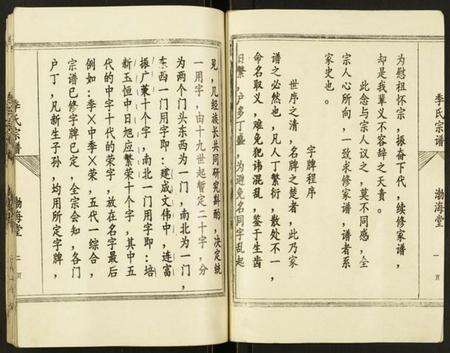 季氏宗譜
渤海堂
一頁
为慰祖怀宗，振奋下代，续修家谱，
却是我輩义不容辞之天責。
此念与宗人议之，莫不同感，全
宗人心所向，一致求修家谱，谱者系
家史也。
字牌程序
世序之清，名牌之楚者，此乃家
谱之必然也，凡人丁繁衍，散处不一，
命名取义，难免犯讳混乱，鉴于生齿
日繁，户多丁盛，为避免名同字乱起
见，几经族长共同研究斟酌，决定统
一用字，由十九世起暂定二十字，分
为两个门头东西为一门，南北为一门，
东西一门用字即：建成文伟中，连富
振广 十个字，南北一门用字即：培
新玉恒中日旭应繁荣十个字，其中五
代的中字十代的荣字，放在名字最后
例如：季×中季×荣，五代一综合，
宗谱已修字牌已定，全宗会知，各门
户丁，凡新生子孙，均用所定字牌，
季氏宗譜
渤海堂
二頁